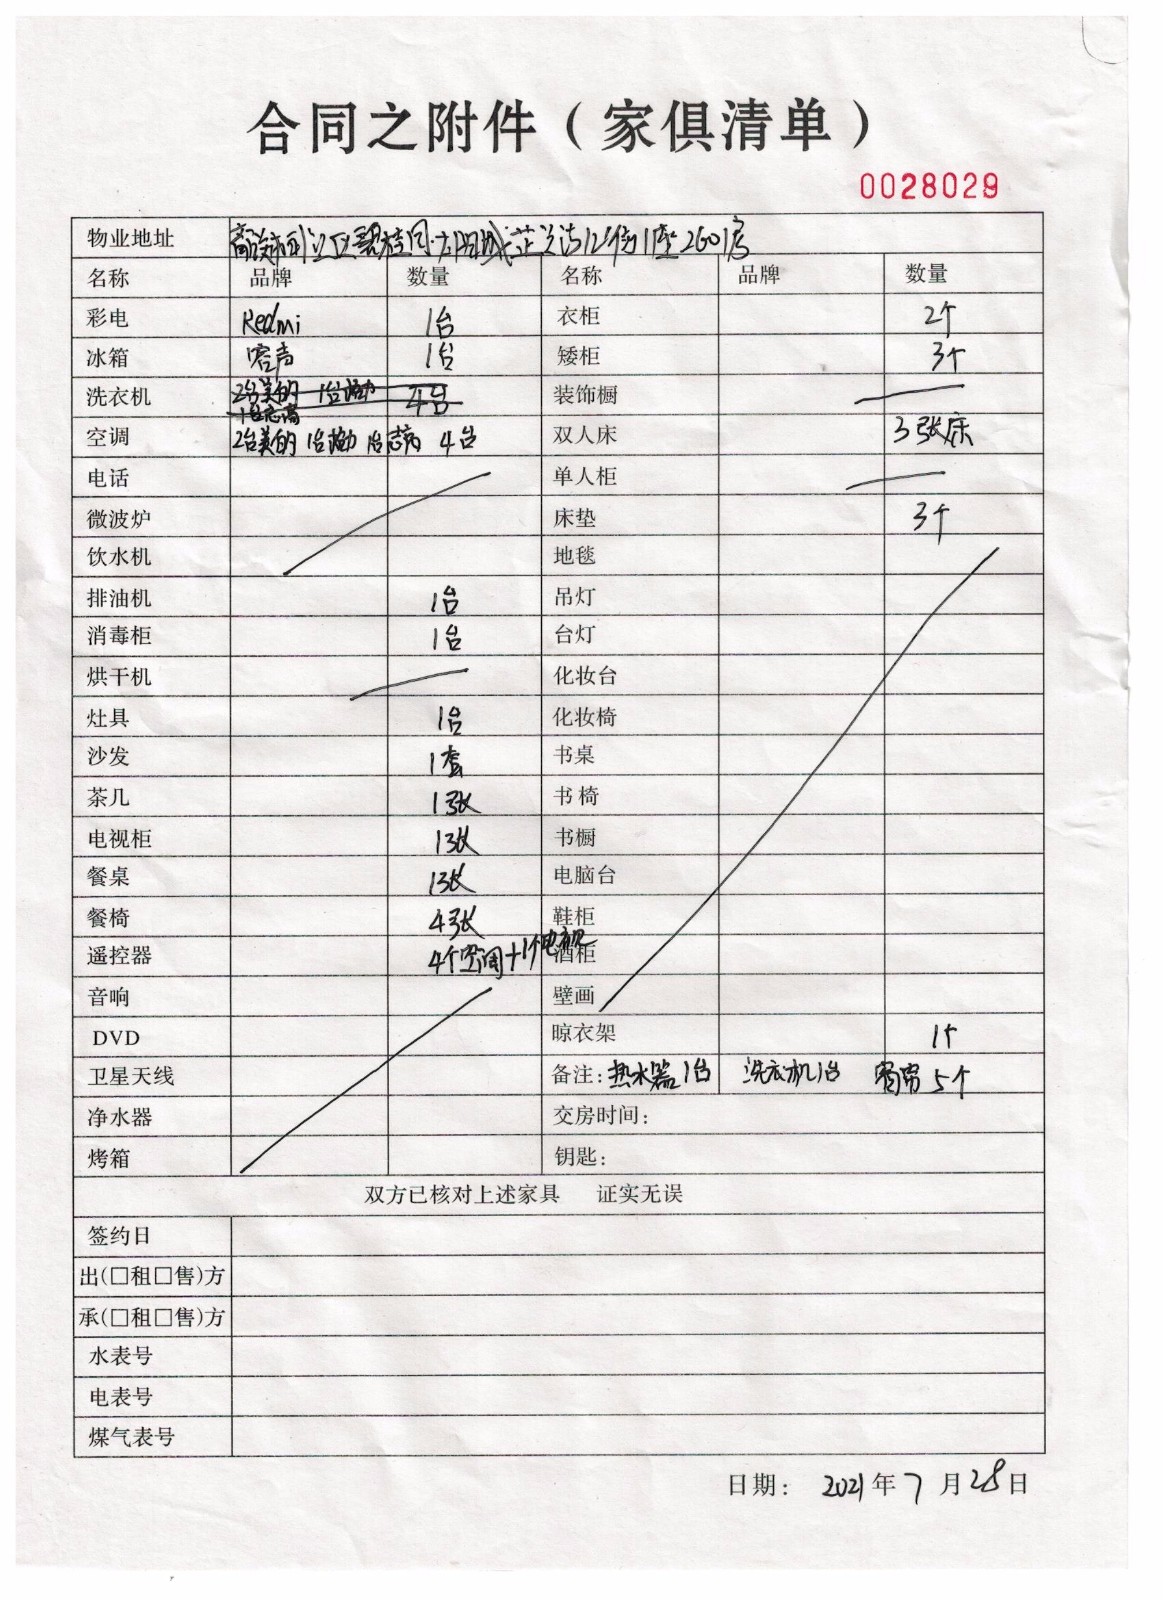 合同之附件（家俱清单）
0028029
物业地址 区碧桂园 12街11座2601房
名称 品牌 数量 名称 品牌 数量
彩电 Redmi 1台 衣柜 2个
冰箱 容声 1台 矮柜 3个
洗衣机 2台美的 1台 4台 装饰橱
1台志高
空调 2台美的 1台 1台志高 4台 双人床 3张床
电话 单人柜
微波炉 床垫 3个
饮水机 地毯
排油机 1台 吊灯
消毒柜 1台 台灯
烘干机 化妆台
灶具 1台 化妆椅
沙发 1套 书桌
茶几 1张 书椅
电视柜 1张 书橱
餐桌 1张 电脑台
餐椅 4张 鞋柜
遥控器 4个空调+1个电视 酒柜
音响 壁画
DVD 晾衣架 1个
卫星天线 备注：热水器1台 洗衣机1台 窗帘5个
净水器 交房时间：
烤箱 钥匙：
双方已核对上述家具 证实无误
签约日
出(□租□售)方
承(□租□售)方
水表号
电表号
煤气表号
日期： 2021年7月28日